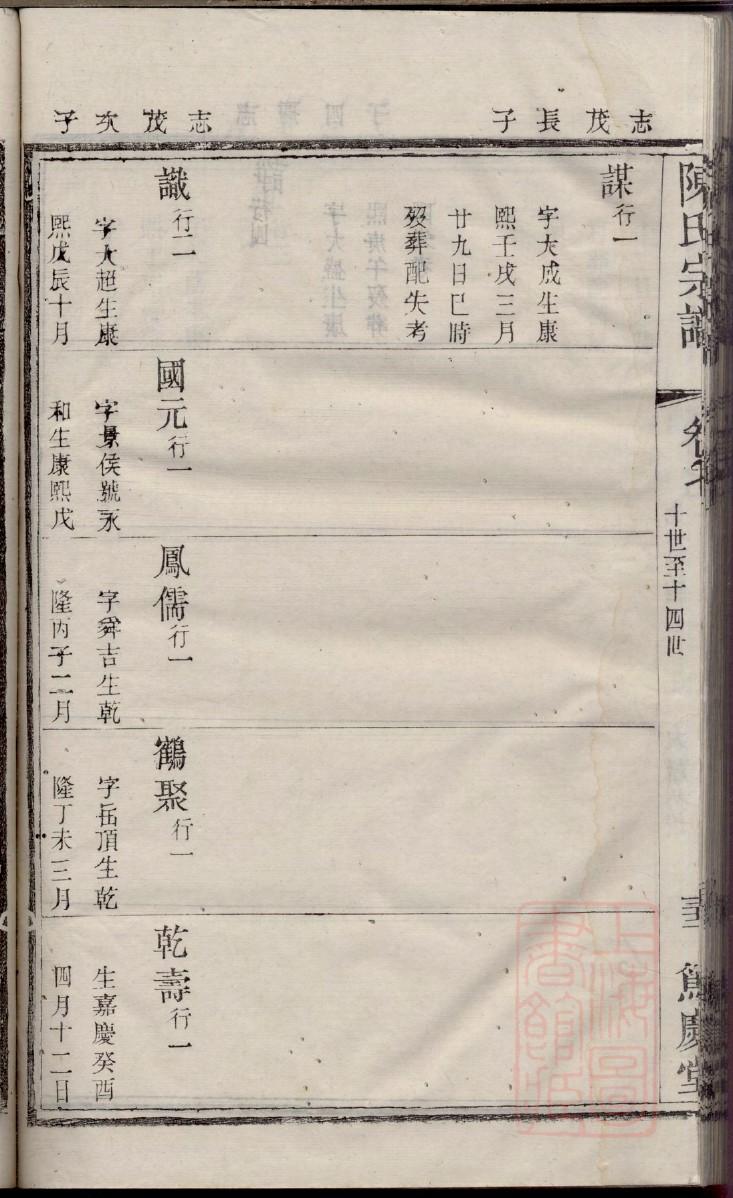 陳氏宗譜
十世至十四世
慶堂
志茂長子
謀行一
字大成生康
熙壬戌三月
廿九日巳時
歿葬配失考
志茂次子
識行二
字大超生康
熙戊辰十月
國元行一
字景侯號永
和生康熙戊
鳳儒行一
字舜吉生乾
隆丙子二月
鶴聚行一
字岳頂生乾
隆丁未三月
乾壽行一
生嘉慶癸酉
四月十二日